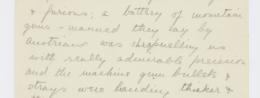 & furious; a battery of mountain
guns - manned they say by
Austrians was shrapnelling us
with really admirable precision
and the machine gun bullets &
strays were handing thicker &